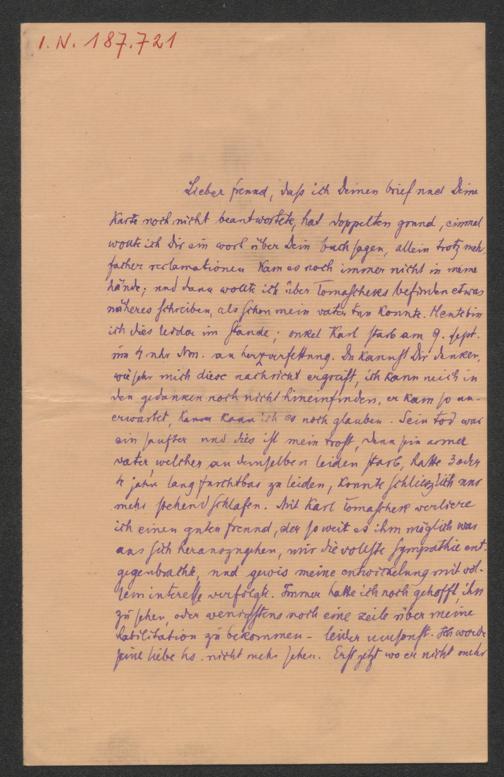 I. N. 187.721
Lieber freund, daß ich Deinen brief und Deine
Karte noch nicht beantwortete, hat doppelten grund, einmal
wollte ich Dir ein wort über Dein buch sagen, allein trotz meh-
facher reclamationen kam es noch immer nicht in meine
hände; und dann wollte ich über Tomascheks befinden etwas
näheres schreiben, als schon mein vater tun konnte. Heute bin
ich dies leider im stande; onkel Karl starb am 9. sept.
um 4 uhr Nm. an herzverfettung. Du kannst Dir denken,
wie sehr mich diese nachricht ergreift, ich kann mich in
den gedanken noch nicht hineinfinden, er kam so un-
erwartet, kaum kann ich es noch glauben. Sein tod war
ein sanfter und dies ist mein trost, denn sein armer
vater, welcher an demselben leiden starb, hatte 3 oder
4 jahre lang furchtbar zu leiden, konnte schließlich nur
mehr stehend schlafen. Mit Karl Tomaschek verliere
ich einen guten freund, der so weit es ihm möglich war
aus sich herauszugehen, mir die vollste sympathie ent-
gegenbrachte, und gewis meine entwickelung mit vol-
lem interesse verfolgte. Immer hatte ich noch gehofft ihn
zu sehen, oder wenigstens noch eine zeile über meine
habilitation zu bekommen - leider umsonst. Ich werde
seine liebe hs. nicht mehr sehen. Erst jetzt wo er nicht mehr